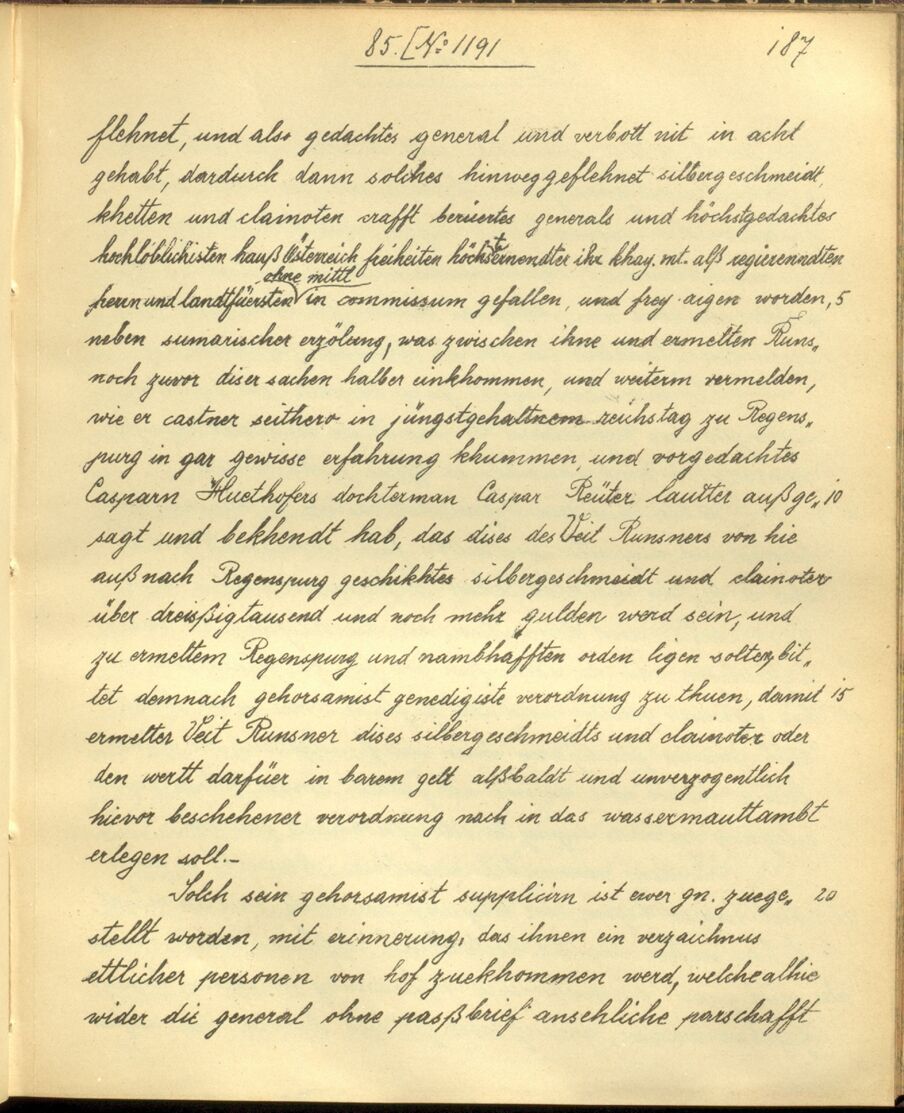 85. [No 1191
187
flehnet, und also gedachtes general und verbott nit in acht
gehabt, dardurch dann solches hinweggeflehnet silbergeschmeidt,
khetten und clainoten crafft berüertes generals und höchstgedachtes
hochlöblichisten hauß Österreich freiheiten höchsternendter ihr khay. mt. alß regierenndten
ohne mittl
herrn und landtfüersten in commissum gefallen, und frey aigen worden, 5
neben sumarischer erzölung, was zwischen ihne und ermelten Runs„
noch zuvor diser sachen halber einkhommen, und weiterm vermelden,
wie er castner seithero in jüngstgehaltnem reichstag zu Regens„
purg in gar gewisse erfahrung khummen, und vorgedachtes
Casparn Huethofers dochterman Caspar Reüter lautter außge„ 10
sagt und bekhendt hab, das dises des Veit Runsners von hie
auß nach Regenspurg geschikhtes silbergeschmeidt und clainoter
über dreißigtausend und noch mehr gulden werd sein, und
zu ermeltem Regenspurg und nambhafften orden ligen solten, bit„
tet demnach gehorsamist genedigiste verordnung zu thuen, damit 15
ermelter Veit Runsner dises silbergeschmeidts und clainoter oder
den wertt darfüer in barem gelt alßbaldt und unverzogentlich
hievor beschehener verordnung nach in das wassermauttambt
erlegen soll.–
Solch sein gehorsamist supplicirn ist ewer gn. zuege„ 20
stellt worden, mit erinnerung, das ihnen ein verzaichnus
ettlicher personen von hof zuekhommen werd, welche alhie
wider die general ohne paßbrief ansehliche parschafft